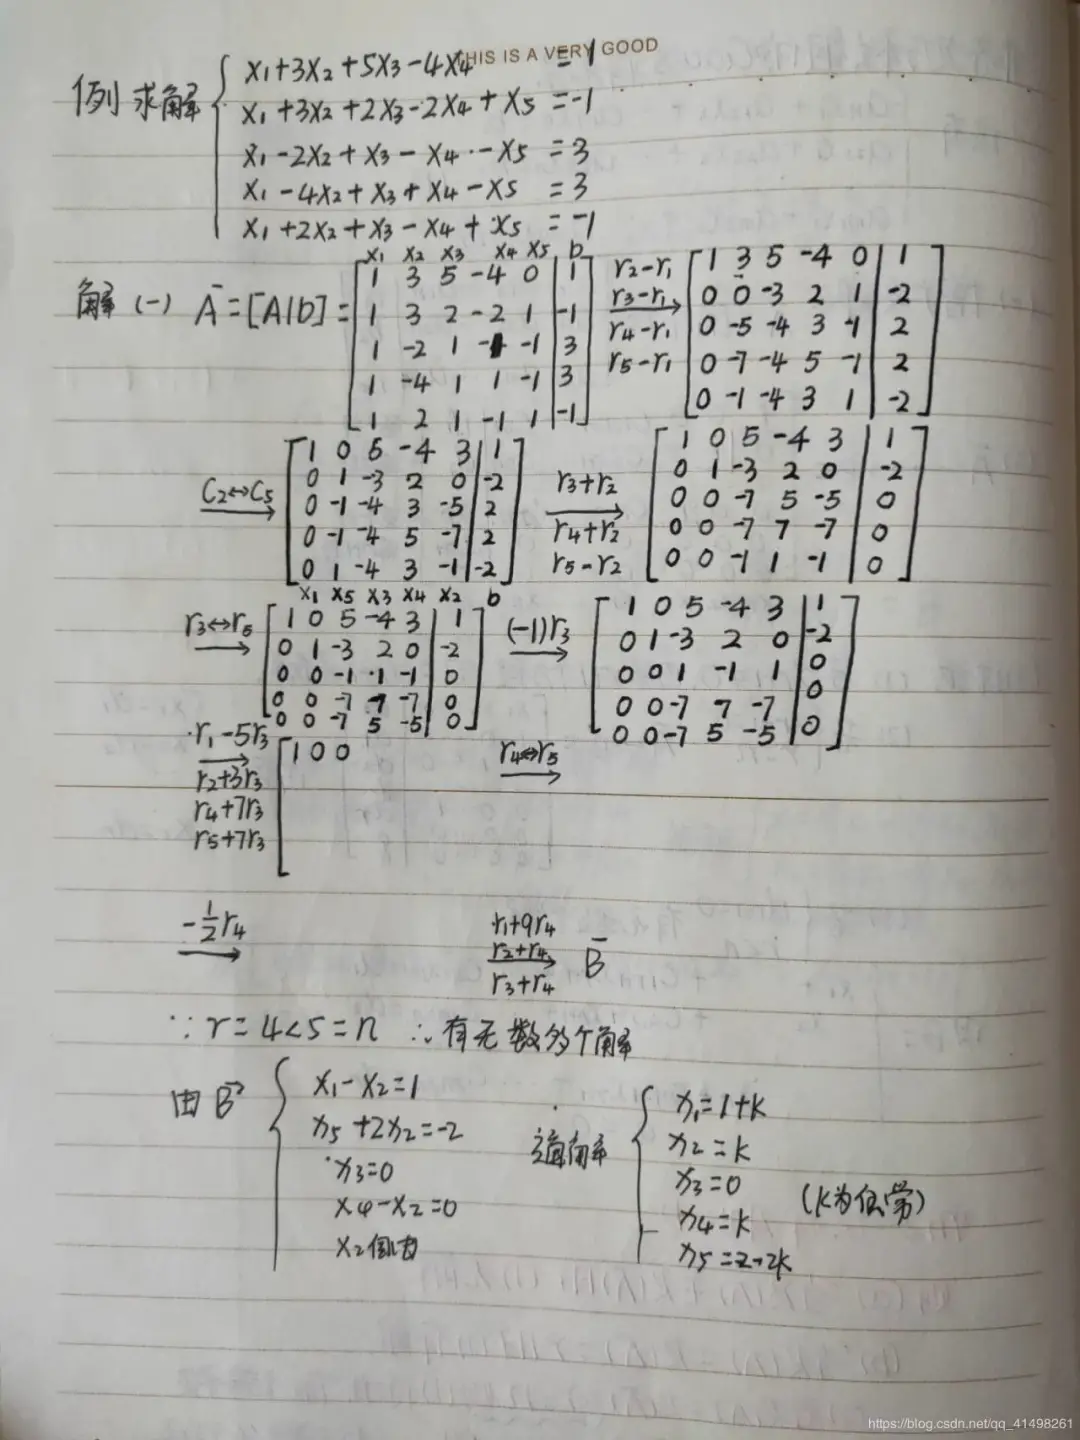 THIS IS A VERY GOOD
例 求解 { x₁+3x₂+5x₃-4x₄ = 1
x₁+3x₂+2x₃-2x₄+x₅ = -1
x₁-2x₂+x₃-x₄-x₅ = 3
x₁-4x₂+x₃+x₄-x₅ = 3
x₁+2x₂+x₃-x₄+x₅ = -1
x₁ x₂ x₃ x₄ x₅ b
解 (一) Ā=[A|b]=
1 3 5 -4 0 | 1
1 3 2 -2 1 | -1
1 -2 1 -1 -1 | 3
1 -4 1 1 -1 | 3
1 2 1 -1 1 | -1
r₂-r₁
r₃-r₁
r₄-r₁
r₅-r₁
1 3 5 -4 0 | 1
0 0 -3 2 1 | -2
0 -5 -4 3 -1 | 2
0 -7 -4 5 -1 | 2
0 -1 -4 3 1 | -2
C₂↔C₅
1 0 5 -4 3 | 1
0 1 -3 2 0 | -2
0 -1 -4 3 -5 | 2
0 -1 -4 5 -7 | 2
0 1 -4 3 -1 | -2
r₃+r₂
r₄+r₂
r₅-r₂
1 0 5 -4 3 | 1
0 1 -3 2 0 | -2
0 0 -7 5 -5 | 0
0 0 -7 7 -7 | 0
0 0 -1 1 -1 | 0
x₁ x₅ x₃ x₄ x₂ b
r₃↔r₅
1 0 5 -4 3 | 1
0 1 -3 2 0 | -2
0 0 -1 1 -1 | 0
0 0 -7 7 -7 | 0
0 0 -7 5 -5 | 0
(-1)r₃
1 0 5 -4 3 | 1
0 1 -3 2 0 | -2
0 0 1 -1 1 | 0
0 0 -7 7 -7 | 0
0 0 -7 5 -5 | 0
r₁-5r₃
r₂+3r₃
r₄+7r₃
r₅+7r₃
1 0 0
r₄↔r₅
-½r₄
r₁+9r₄
r₂+r₄
r₃+r₄
B̄
∵ r=4<5=n ∴有无数多个解
由B̄ { x₁-x₂=1
x₅+2x₂=-2
x₃=0
x₄-x₂=0
x₂自由
通解 { x₁=1+k
x₂=k
x₃=0
x₄=k
x₅=2-2k
(k为任常)
https://blog.csdn.net/qq_41498261